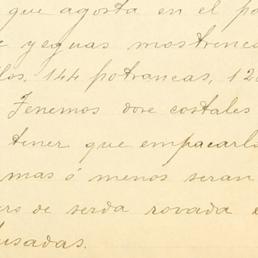 que agosta en el pa
e yeguas mostrenca
los, 144 potrancas, 12
Tenemos dose costales
tener que empacarl
mas ó menos seran
ero de serda rovada e
usadas.